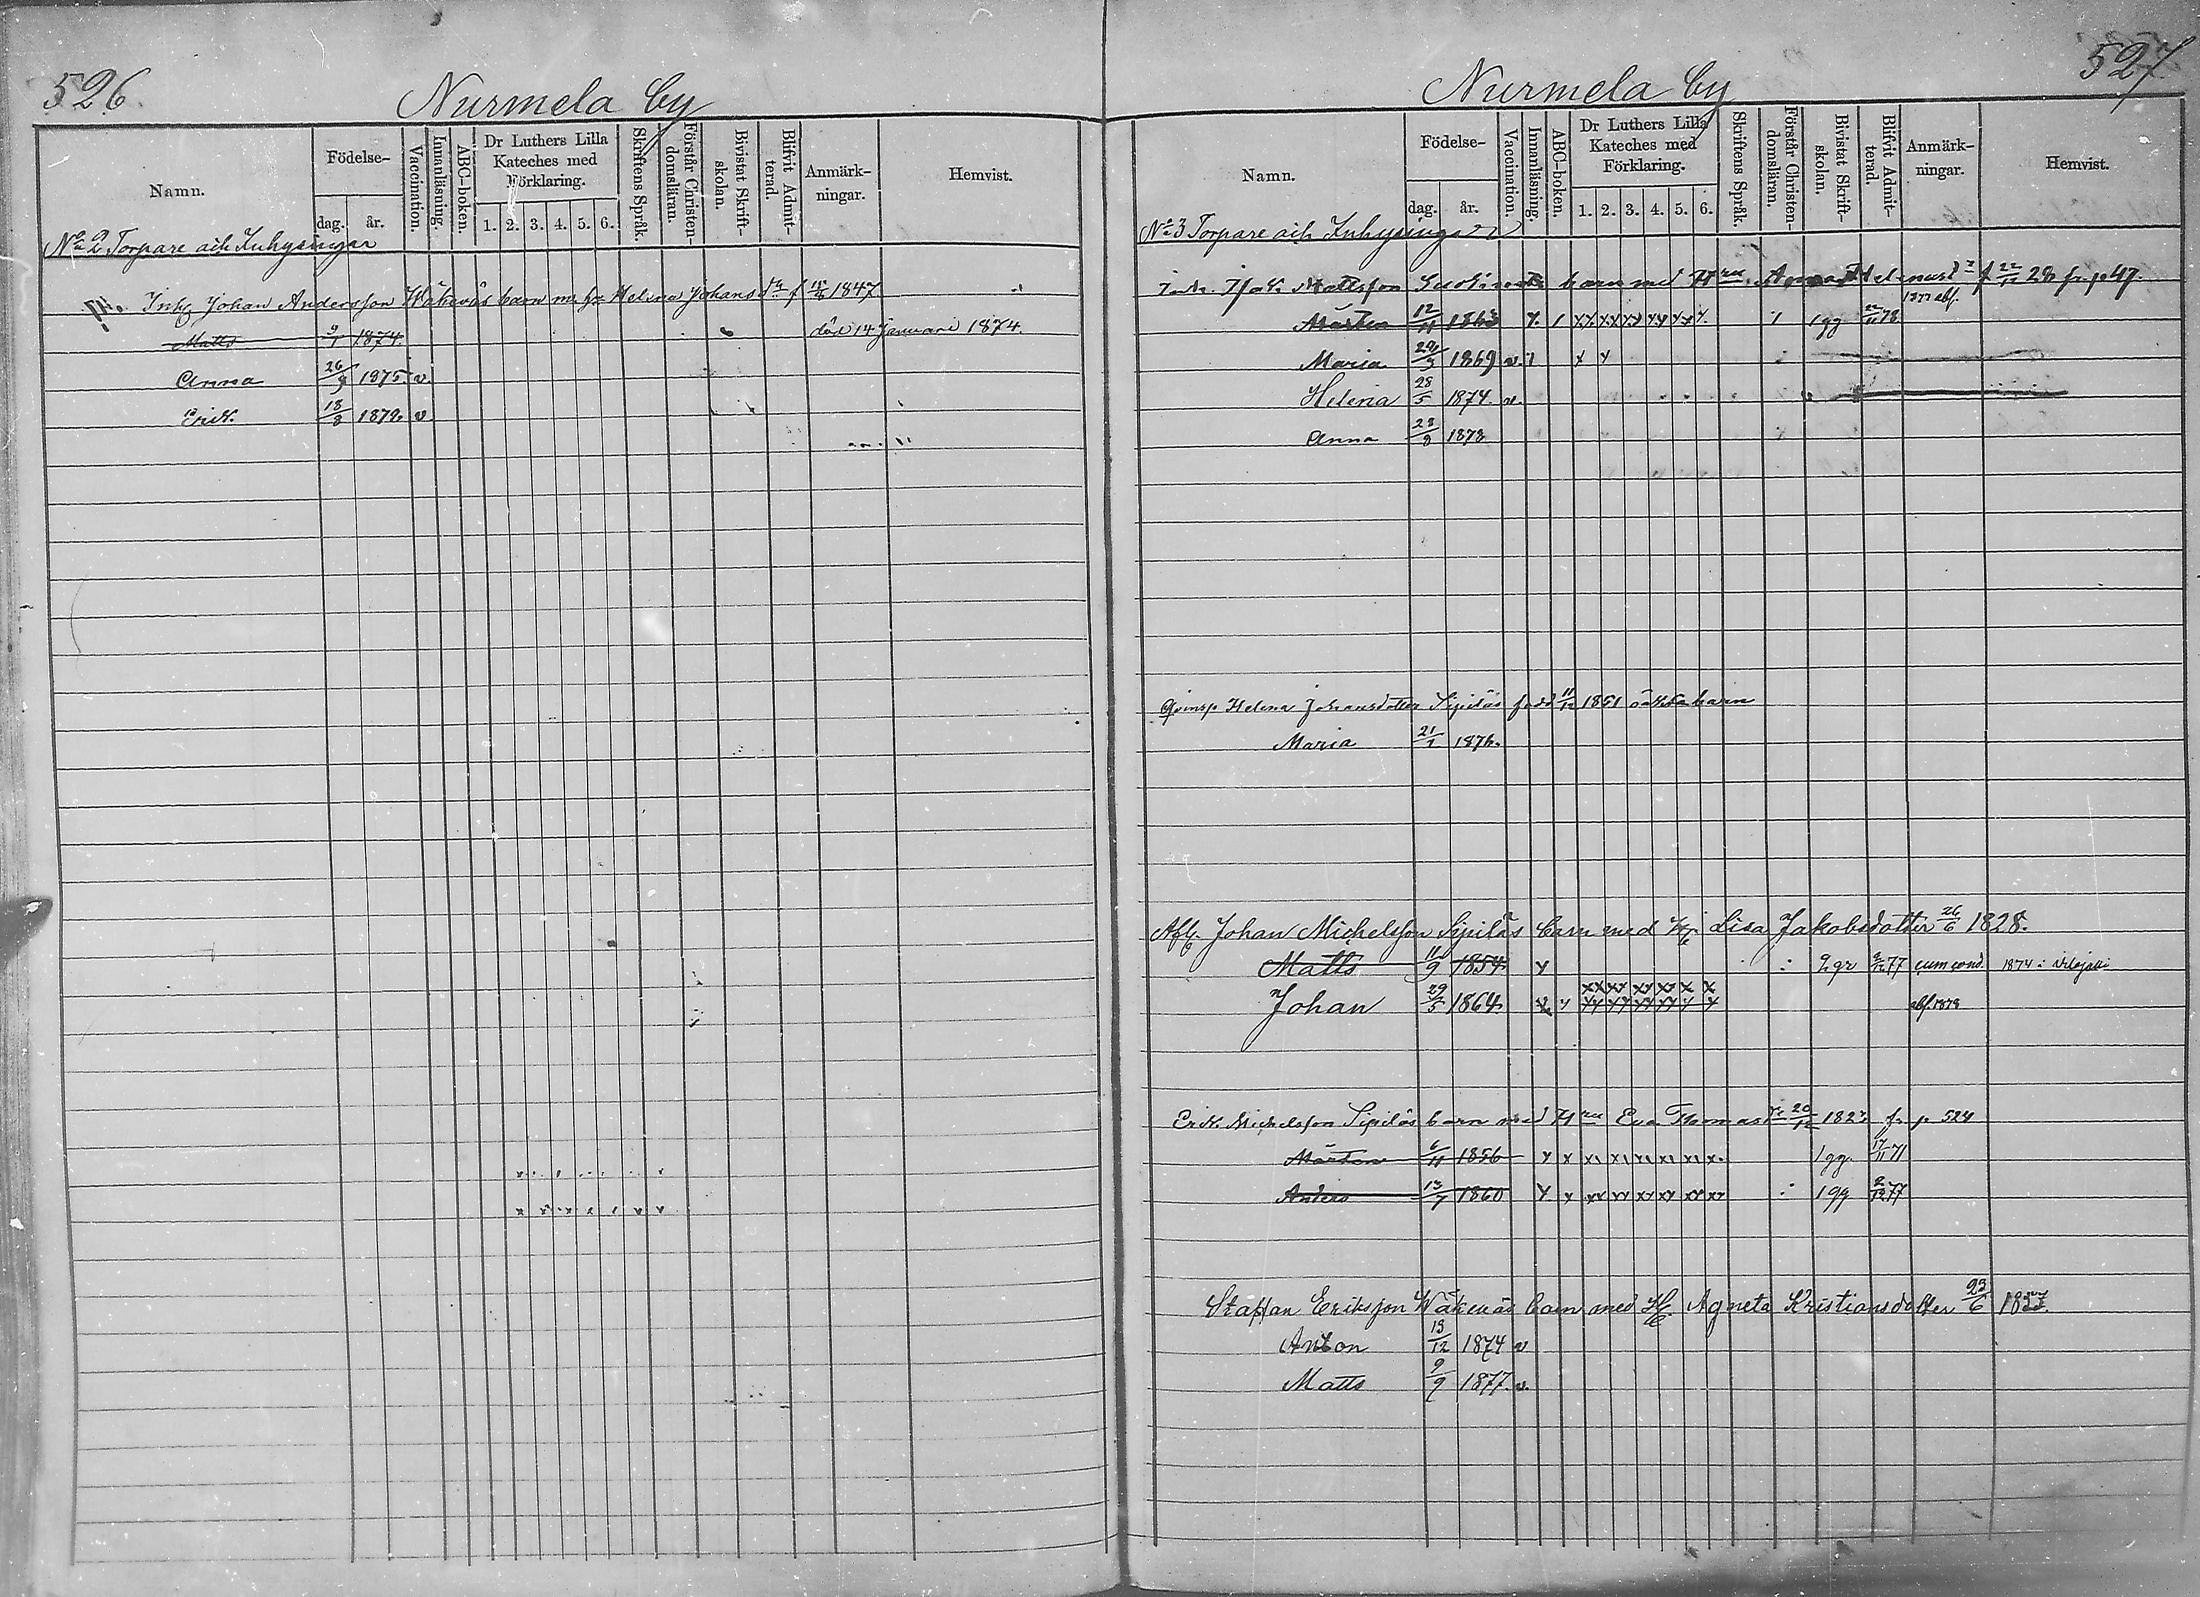 526.
Nurmela by
Namn.
Födelse-
dag.
år.
Vaccination.
Innanläsning.
ABC-boken.
Dr Luthers Lilla
Kateches med
Förklaring.
1. 2. 3. 4. 5. 6.
Skriftens Språk.
Förstår Christen-
domsläran.
Bivistat Skrift-
skolan.
Blifvit Admit-
terad.
Anmärk-
ningar.
Hemvist.
No 2 Torpare och Inhysingar
Johan Andersson barn m. Helena Johansdr f 1847
Matts 9/1 1874. död 14 Januari 1874.
Anna 26/9 1875. v.
Erik 18/8 1879. v
527
Nurmela by
Namn.
Födelse-
dag.
år.
Vaccination.
Innanläsning.
ABC-boken.
Dr Luthers Lilla
Kateches med
Förklaring.
1. 2. 3. 4. 5. 6.
Skriftens Språk.
Förstår Christen-
domsläran.
Bivistat Skrift-
skolan.
Blifvit Admit-
terad.
Anmärk-
ningar.
Hemvist.
No 3 Torpare och Inhysingar
Mattsson barn med Hru f 22/12 28 fr. p 47.
1877 abf.
Mårten 12/11 1863 1 gg 78
Maria 1869 v.
Helena 28/5 1874. v.
Anna 23/8 1878
Helena Johansdotter Sipiläs född 11/12 1851 oäkta barn
Maria 21/1 1876.
Johan Michelsson Sipiläs barn med H. Lisa Jakobsdotter 26/6 1828.
Matts 11/9 1854 y 2 gr 77 cum cond. 1874 i
Johan 29/5 1864. abf. 1878
Erik Michelsson Sipiläs barn med Hru Eva Thomasdr 20/12 fr. p. 524
Mårten 6/11 1856 1 gg. 17/11 71
Anders 13/7 1860 1 gg 2/12 77
Staffan Eriksson barn med H. Agneta Kristiansdotter 23/6
Anton 13/12 1874 v
Matts 9/9 1877. v.